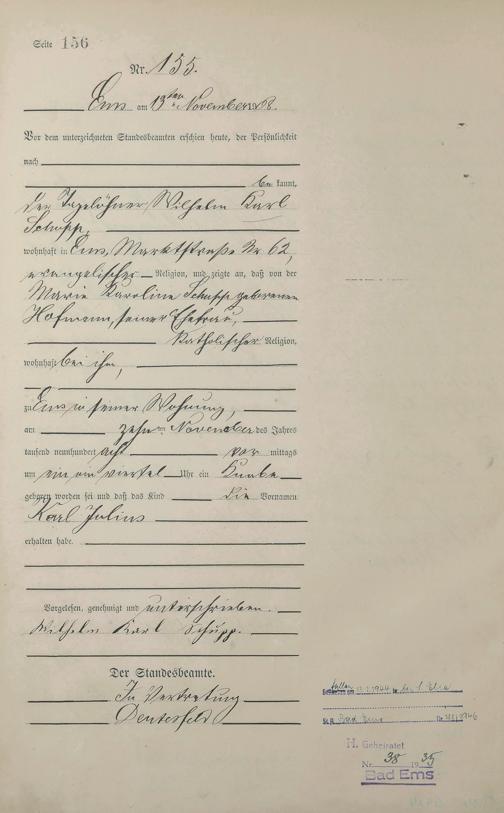 Seite 156
Nr. 155.
Ems am 13ten November 08.
Vor dem unterzeichneten Standesbeamten erschien heute, der Persönlichkeit
nach
be kannt,
der Tagelöhner Wilhelm Karl
Schupp,
wohnhaft in Ems, Marktstraße Nr. 62,
evangelischer Religion, und zeigte an, daß von der
Marie Karoline Schupp geborenen
Hofmann, seiner Ehefrau,
katholischer Religion,
wohnhaft bei ihm,
zu Ems in seiner Wohnung,
am zehnten November des Jahres
tausend neunhundert acht vor mittags
um ein ein viertel Uhr ein Knabe
geboren worden sei und daß das Kind die Vornamen
Karl Julius
erhalten habe.
Vorgelesen, genehmigt und unterschrieben.
Wilhelm Karl Schupp.
Der Standesbeamte.
In Vertretung
1944
StA Bad Ems Nr. 1946
H. Geheiratet
Nr. 38 1935
Bad Ems